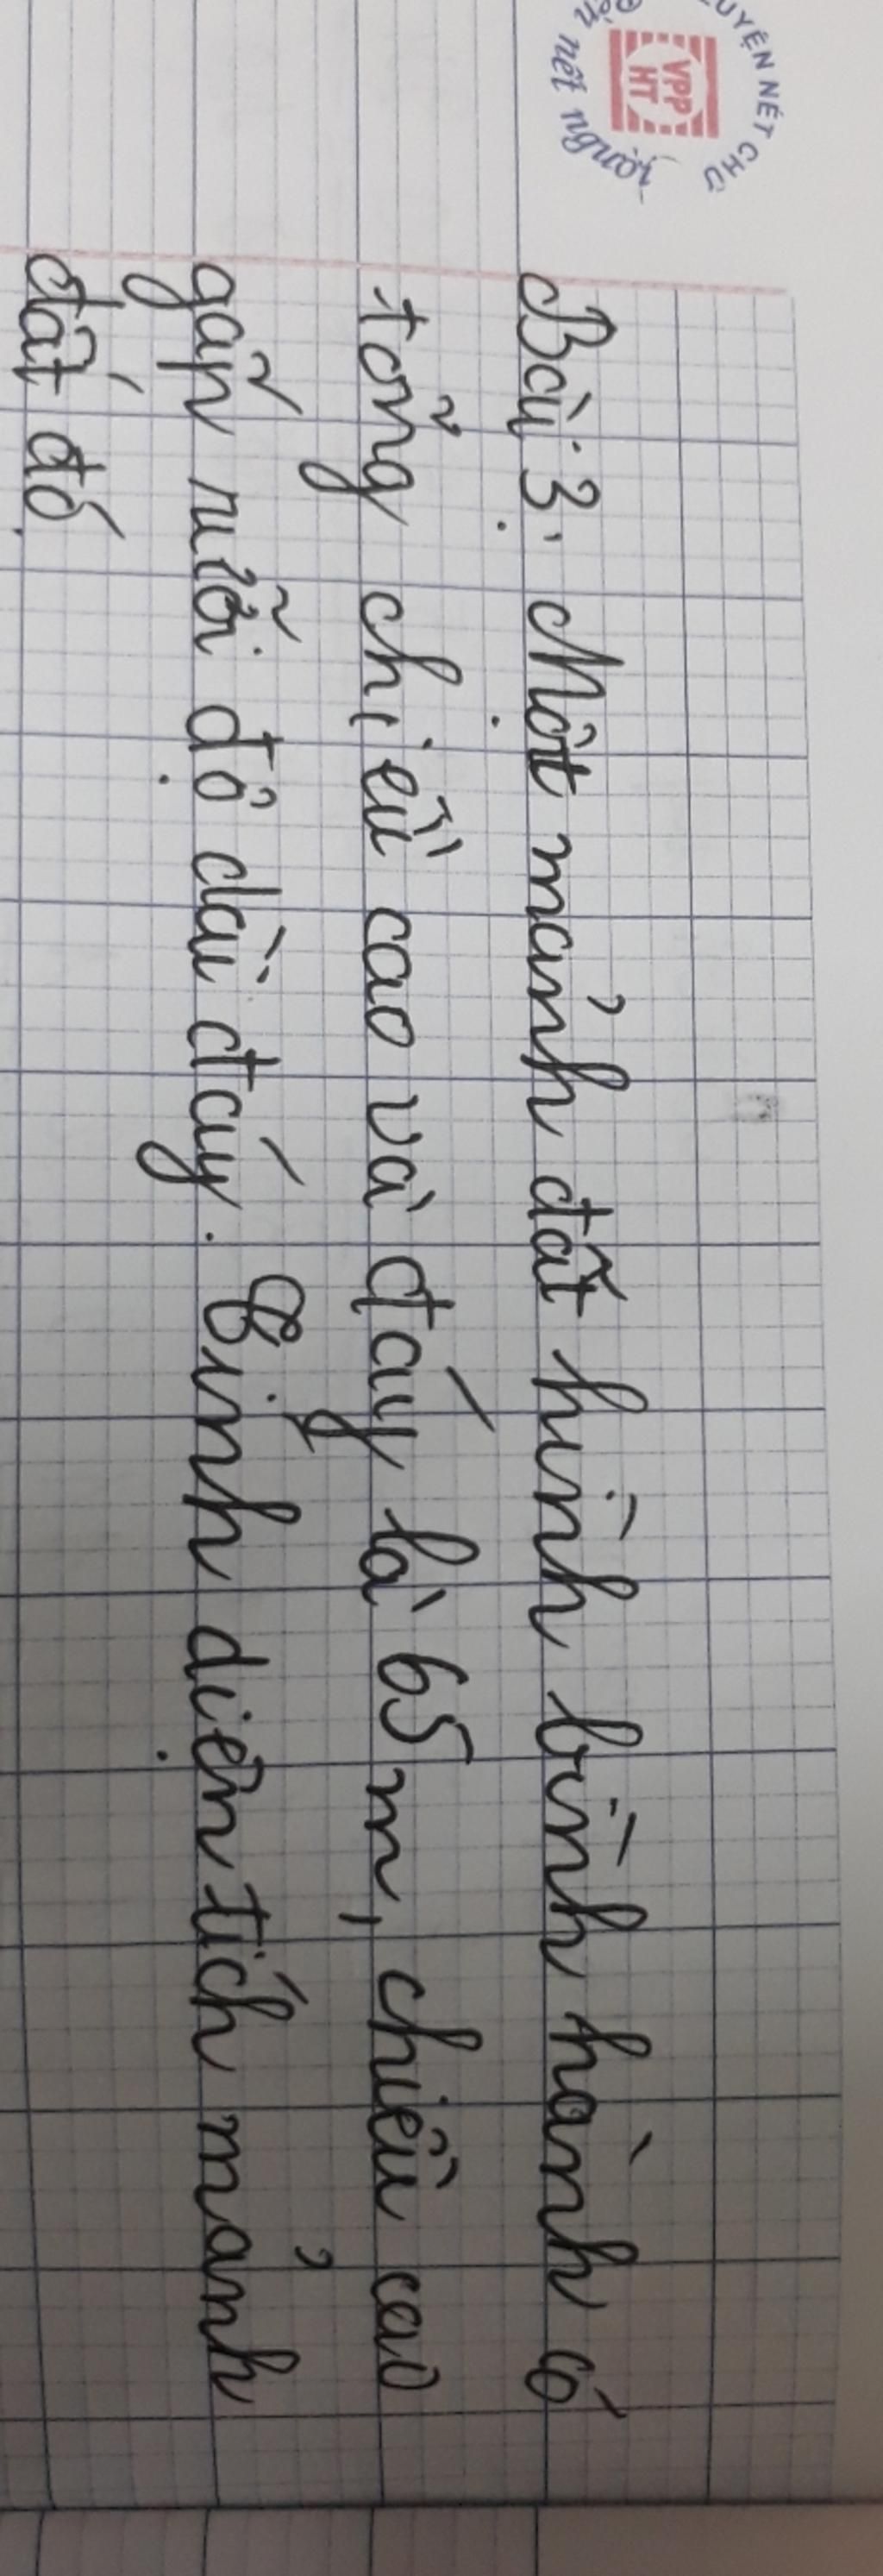 LUYỆN NÉT CHỮ
VPP
HT
Rèn nết người
Bài 3: Một mảnh đất hình bình hành có
tổng chiều cao và đáy là 65 m, chiều cao
gấp rưỡi độ dài đáy. Tính diện tích mảnh
đất đó